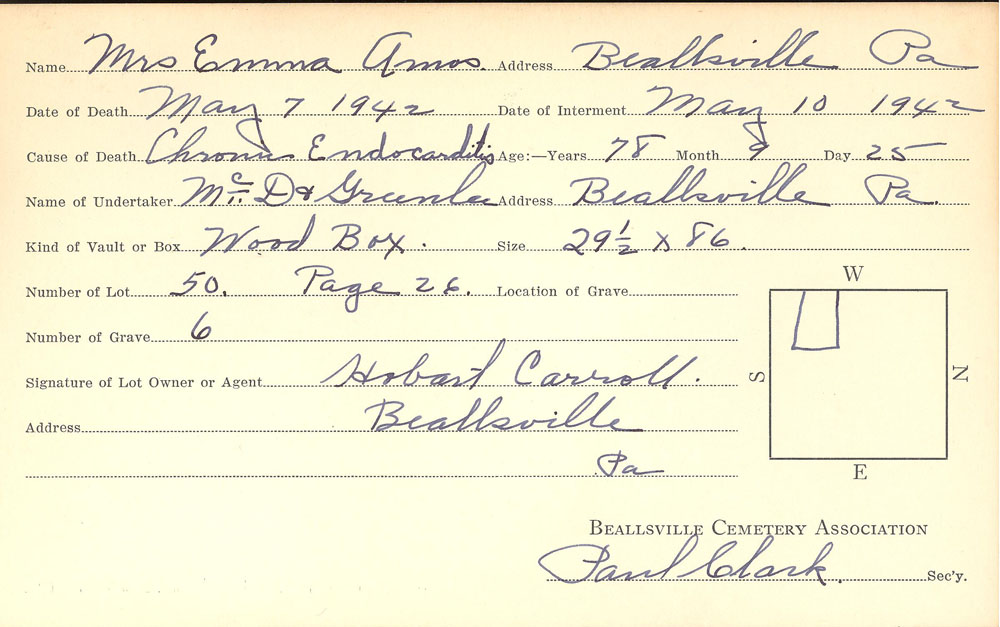 Name Mrs Emma Amos. Address Beallsville Pa
Date of Death May 7 1942 Date of Interment May 10 1942
Cause of Death Chronic Endocarditis Age:—Years 78 Month 9 Day 25
Name of Undertaker Greenlee Address Beallsville Pa.
Kind of Vault or Box Wood Box. Size 29½ x 86.
W
Number of Lot 50. Page 26. Location of Grave
Number of Grave 6
S N
Signature of Lot Owner or Agent Hobart Carroll.
Address Beallsville
Pa
E
BEALLSVILLE CEMETERY ASSOCIATION
Paul Clark. Sec'y.